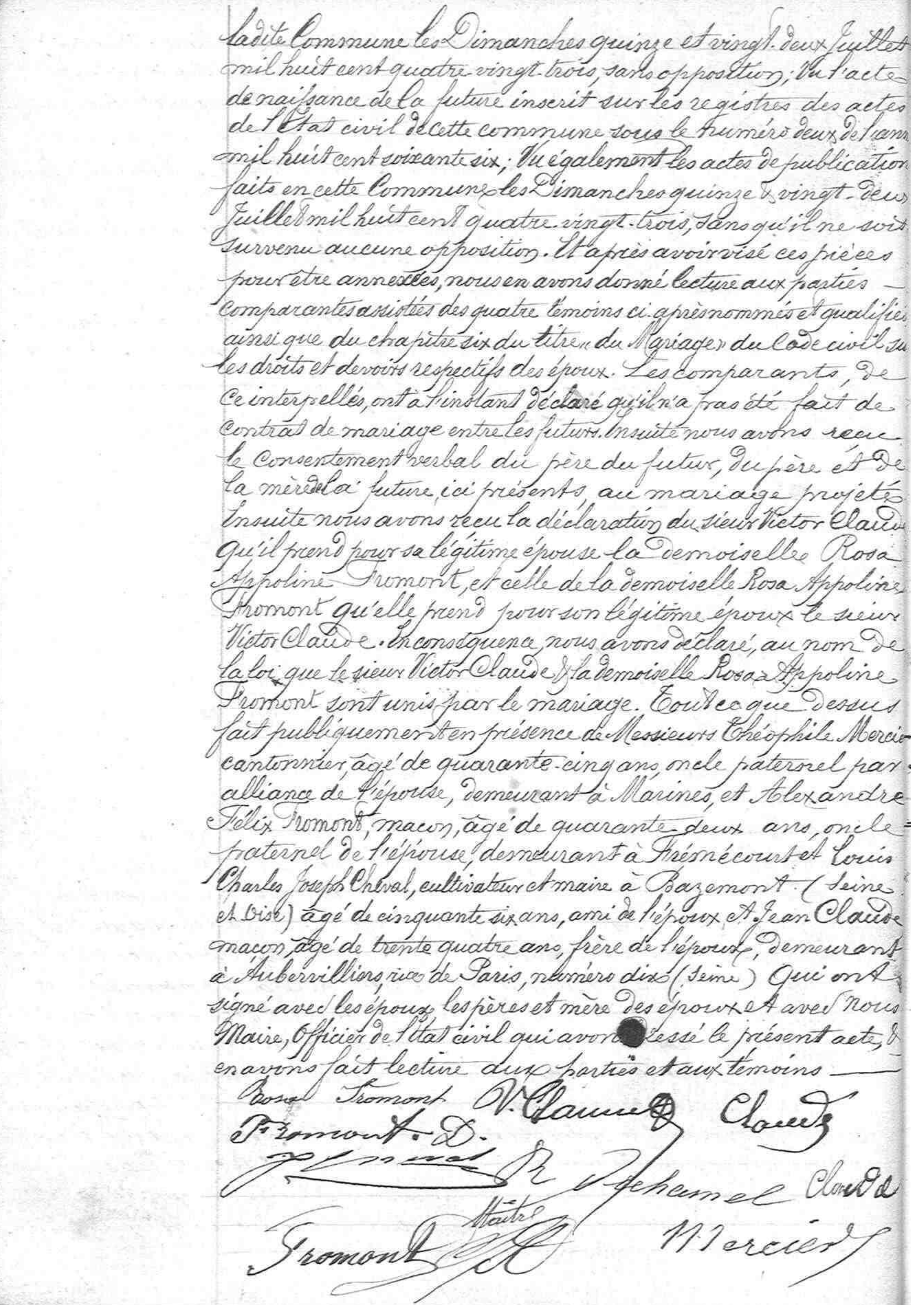 ladite Commune les Dimanches quinze et vingt-deux Juillet
mil huit cent quatre vingt-trois, sans opposition; Vu l'acte
de naissance de la future inscrit sur les registres des actes
de l'Etat civil de cette commune sous le numéro deux de l'ann
mil huit cent soixante six; Vu également les actes de publication
faits en cette Commune les Dimanches quinze & vingt-deux
Juillet mil huit cent quatre-vingt-trois, sans qu'il ne soit
survenu aucune opposition. Et après avoir visé ces pièces
pour être annexées, nous en avons donné lecture aux parties —
comparantes assistées des quatre témoins ci-après nommés et qualifiés
ainsi que du chapitre six du titre « du Mariage » du Code civil su
les droits et devoirs respectifs des époux. Les comparants, de
ce interpellés, ont à l'instant déclaré qu'il n'a pas été fait de
contrat de mariage entre les futurs. Ensuite nous avons reçu
le consentement verbal du père du futur, du père et de
la mère de la future, ici présents, au mariage projeté
Ensuite nous avons reçu la déclaration du sieur Victor Claude
qu'il prend pour sa légitime épouse la demoiselle Rosa
Appoline Fromont, et celle de la demoiselle Rosa Appoline
Fromont qu'elle prend pour son légitime époux le sieur
Victor Claude. En conséquence, nous avons déclaré, au nom de
la loi, que le sieur Victor Claude & la demoiselle Rosa Appoline
Fromont sont unis par le mariage. Tout ce que dessus
fait publiquement en présence de Messieurs Théophile Mercie
cantonnier, âgé de quarante-cinq ans, oncle paternel par
alliance de l'épouse, demeurant à Marines, et Alexandre
Félix Fromont, maçon, âgé de quarante deux ans, oncle
paternel de l'épouse, demeurant à Frémécourt et Louis
Charles Joseph Cheval, cultivateur et maire à Bazemont (Seine
et Oise) âgé de cinquante six ans, ami de l'époux et Jean Claude
maçon, âgé de trente quatre ans, frère de l'époux, demeurant
à Aubervilliers, rue de Paris, numéro dix (Seine) Qui ont
signé avec les époux, les pères et mère des époux et avec nous
Maire, Officier de l'Etat civil qui avons dressé le présent acte, &
en avons fait lecture aux parties et aux témoins —
Rosa Fromont V. Claude Claude
Fromont. D.
Claude
Maître
Fromont Mercier